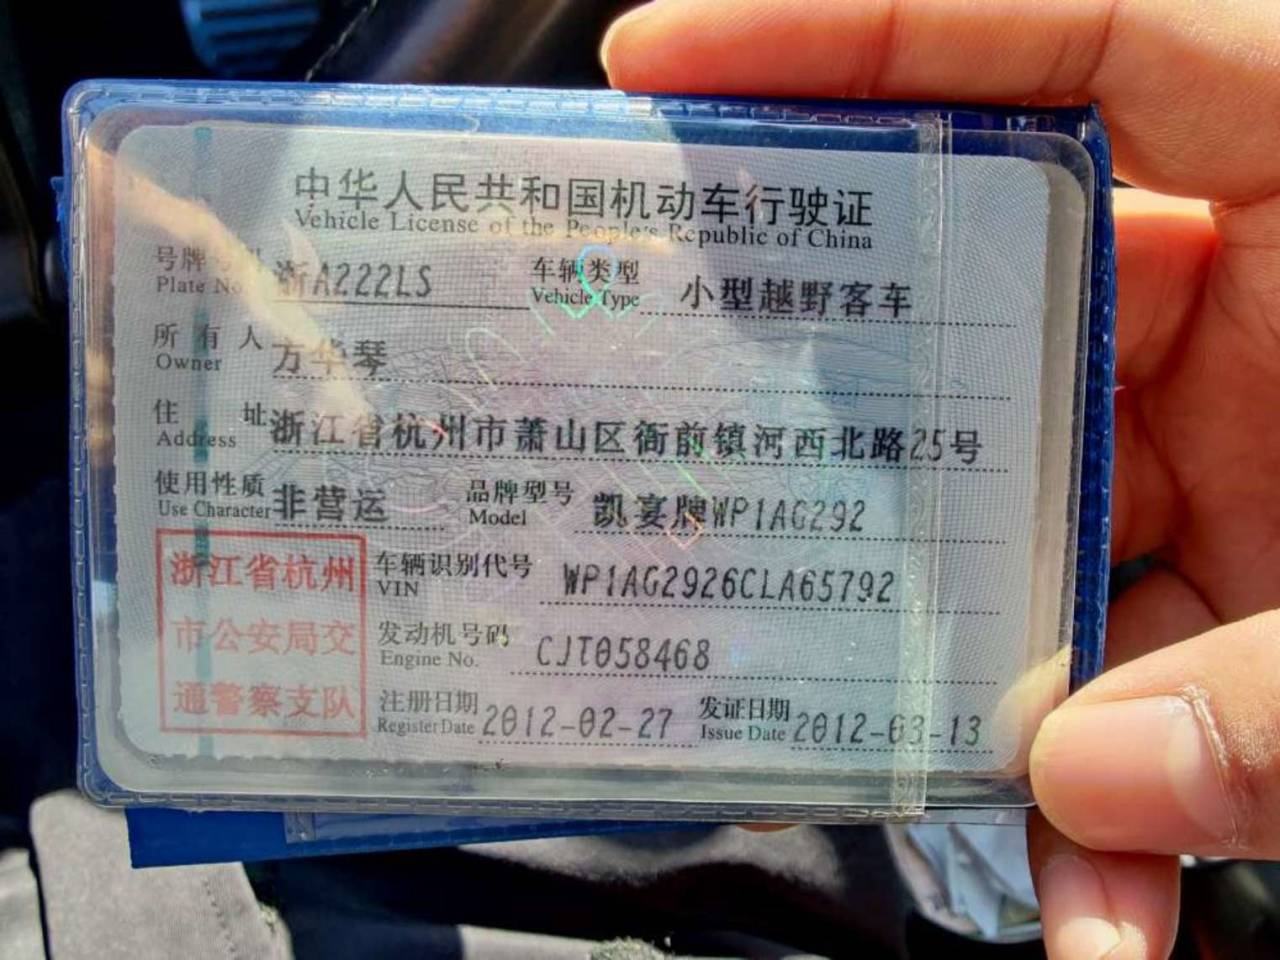 中华人民共和国机动车行驶证
Vehicle License of the People's Republic of China
号牌号码 浙A222LS 车辆类型 小型越野客车
Plate No. Vehicle Type
所有人 方华琴
Owner
住址 浙江省杭州市萧山区衙前镇河西北路25号
Address
使用性质 非营运 品牌型号 凯宴牌WP1AG292
Use Character Model
浙江省杭州
市公安局交
通警察支队
车辆识别代号 WP1AG2926CLA65792
VIN
发动机号码 CJT058468
Engine No.
注册日期 2012-02-27 发证日期 2012-03-13
Register Date Issue Date